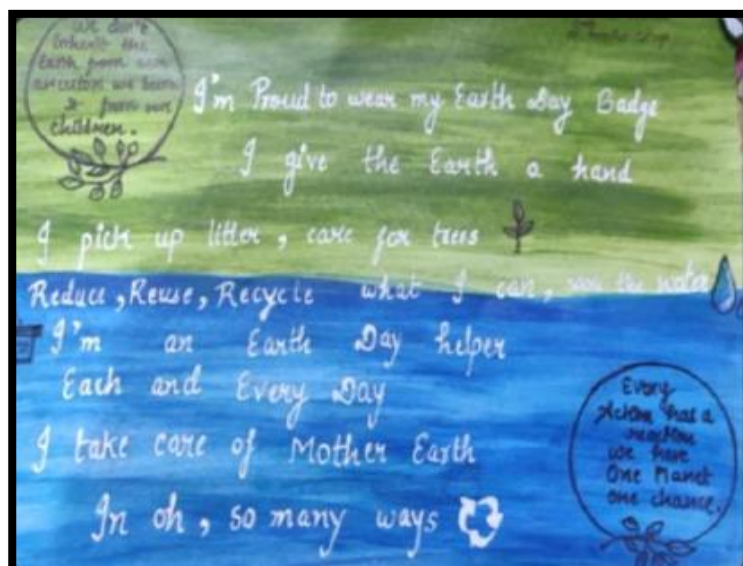 We don't
inherit the
Earth from our
ancestors we borrow
it from our
children.
I'm Proud to wear my Earth Day Badge
I give the Earth a hand
I pick up litter, care for trees
Reduce, Reuse, Recycle what I can, save the water
I'm an Earth Day helper
Each and Every Day
I take care of Mother Earth
In oh, so many ways
Every
Action has a
reaction
we have
One Planet
one chance.